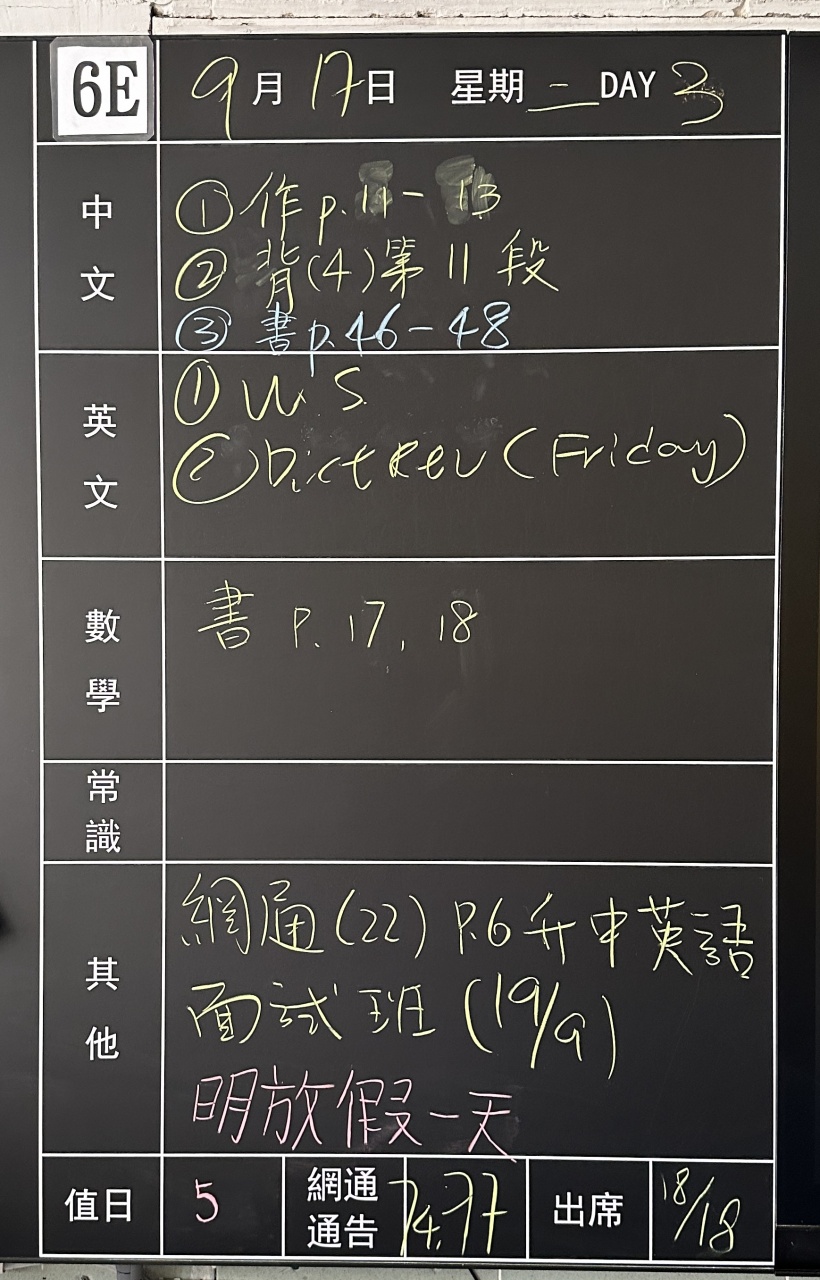 6E 9月17日 星期二 DAY 3
中文
①作p.11-13
②背(4)第11段
③書p.46-48
英文
①W.S.
②Dict Rev (Friday)
數學
書 P.17,18
常識
其他
網通(22) P.6升中英語
面試班 (19/9)
明放假一天
值日 5 網通通告 出席 18/18